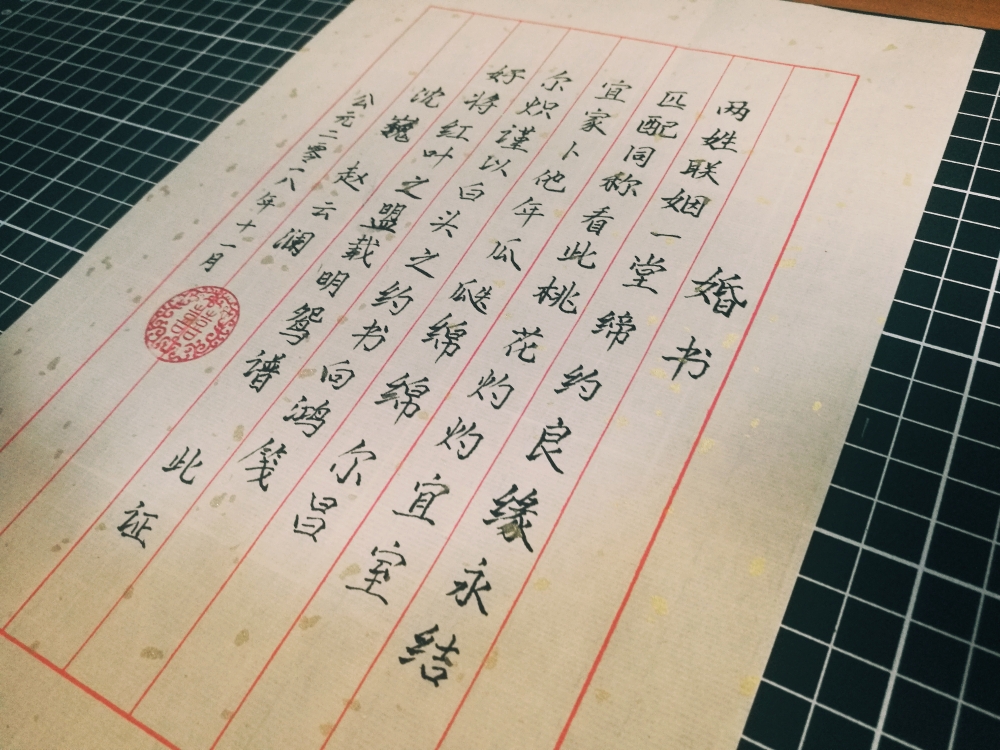 婚书
两姓联姻一堂缔约良缘永结
匹配同称看此桃花灼灼宜室
宜家卜他年瓜瓞绵绵尔昌
尔炽谨以白头之约书向鸿笺
好将红叶之盟载明鸳谱 此证
沈巍 赵云澜
公元二零一八年十一月
囍